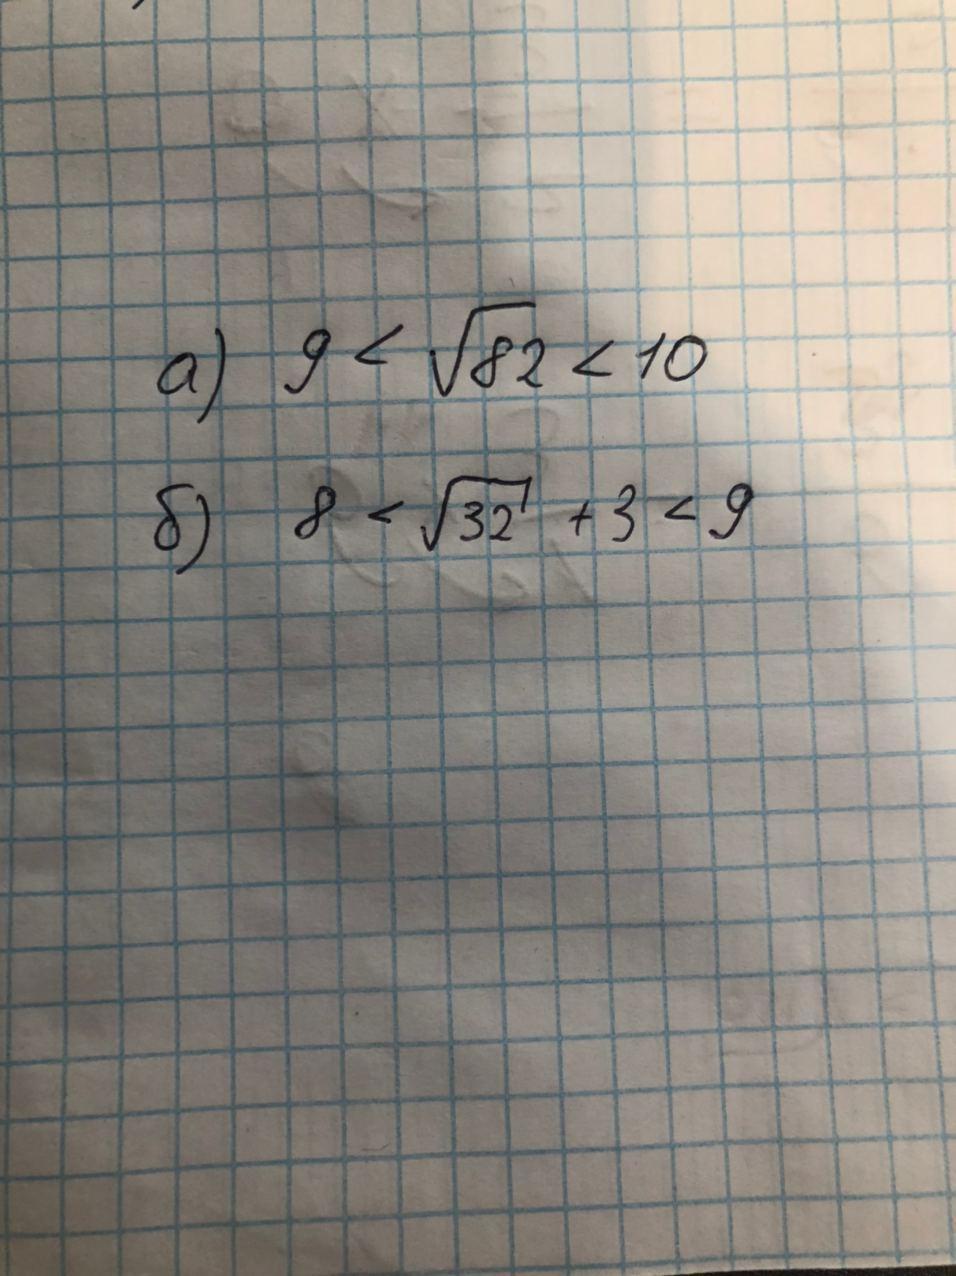 а) 9 < √82 < 10
б) 8 < √32 + 3 < 9